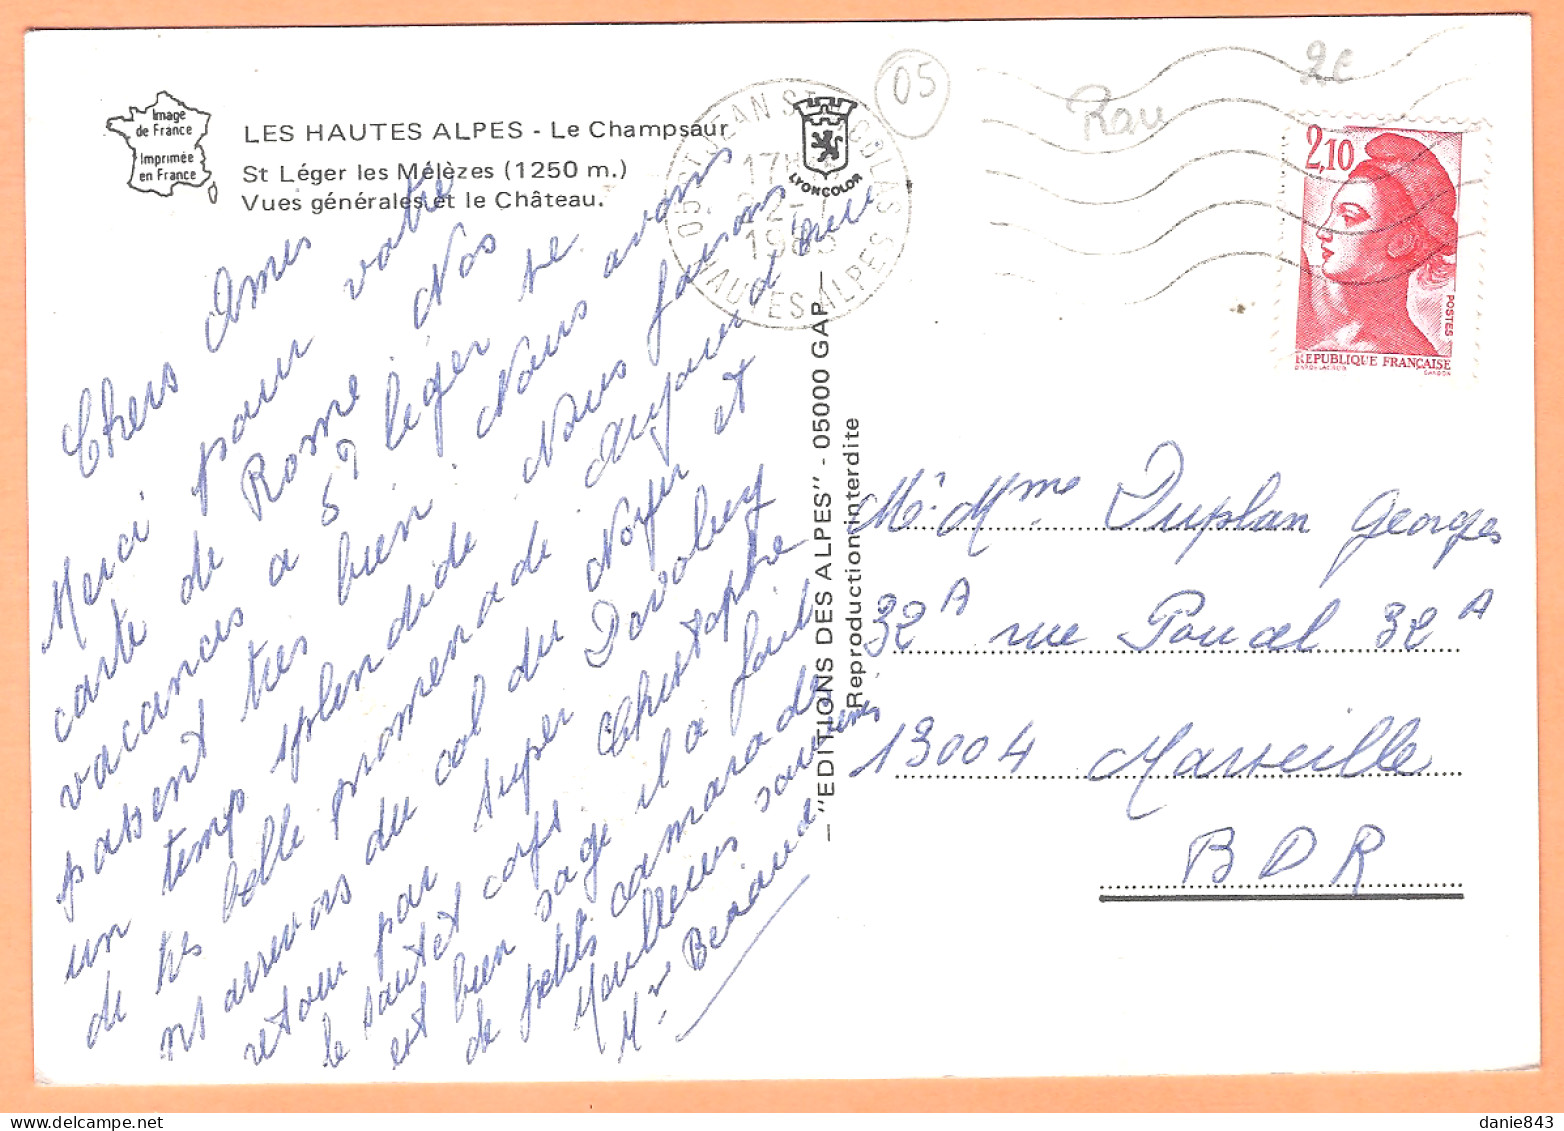 Image
de France
Imprimée
en France
LES HAUTES ALPES - Le Champsaur
St Léger les Mélèzes (1250 m.)
Vues générales et le Château.
Chers Amis
Merci pour votre
carte de Rome Nos
vacances a St léger se
passent tres bien Nous avons
un temps splendide Nous faisons
de tres belle promenade aujourd'hui
ns arrivons du col du Noyer et
retour par super Dévoluy
le sautet corps Christophe
est bien sage il a fait
de petits camarades
Meilleurs souvenirs
Mr Beriaud
05 ST JEAN ST NICOLAS
17H
22-7
HAUTES ALPES
LYONCOLOR
05
Rau
2e
2,10
POSTES
REPUBLIQUE FRANÇAISE
GANDON
— "EDITIONS DES ALPES" - 05000 GAP —
Reproduction interdite
Mr Mme Duplan Georges
32A rue Poucel 32A
13004 Marseille
B D R
danie843